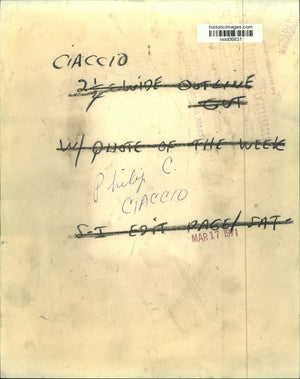 historicimages.com
noo06831
CIACCIO
2 1/4 c WIDE OUTLINE
CUT
W/ QUOTE OF THE WEEK
Philip C.
CIACCIO
S-I EDIT PAGE/ SAT-
MAR 17 1971